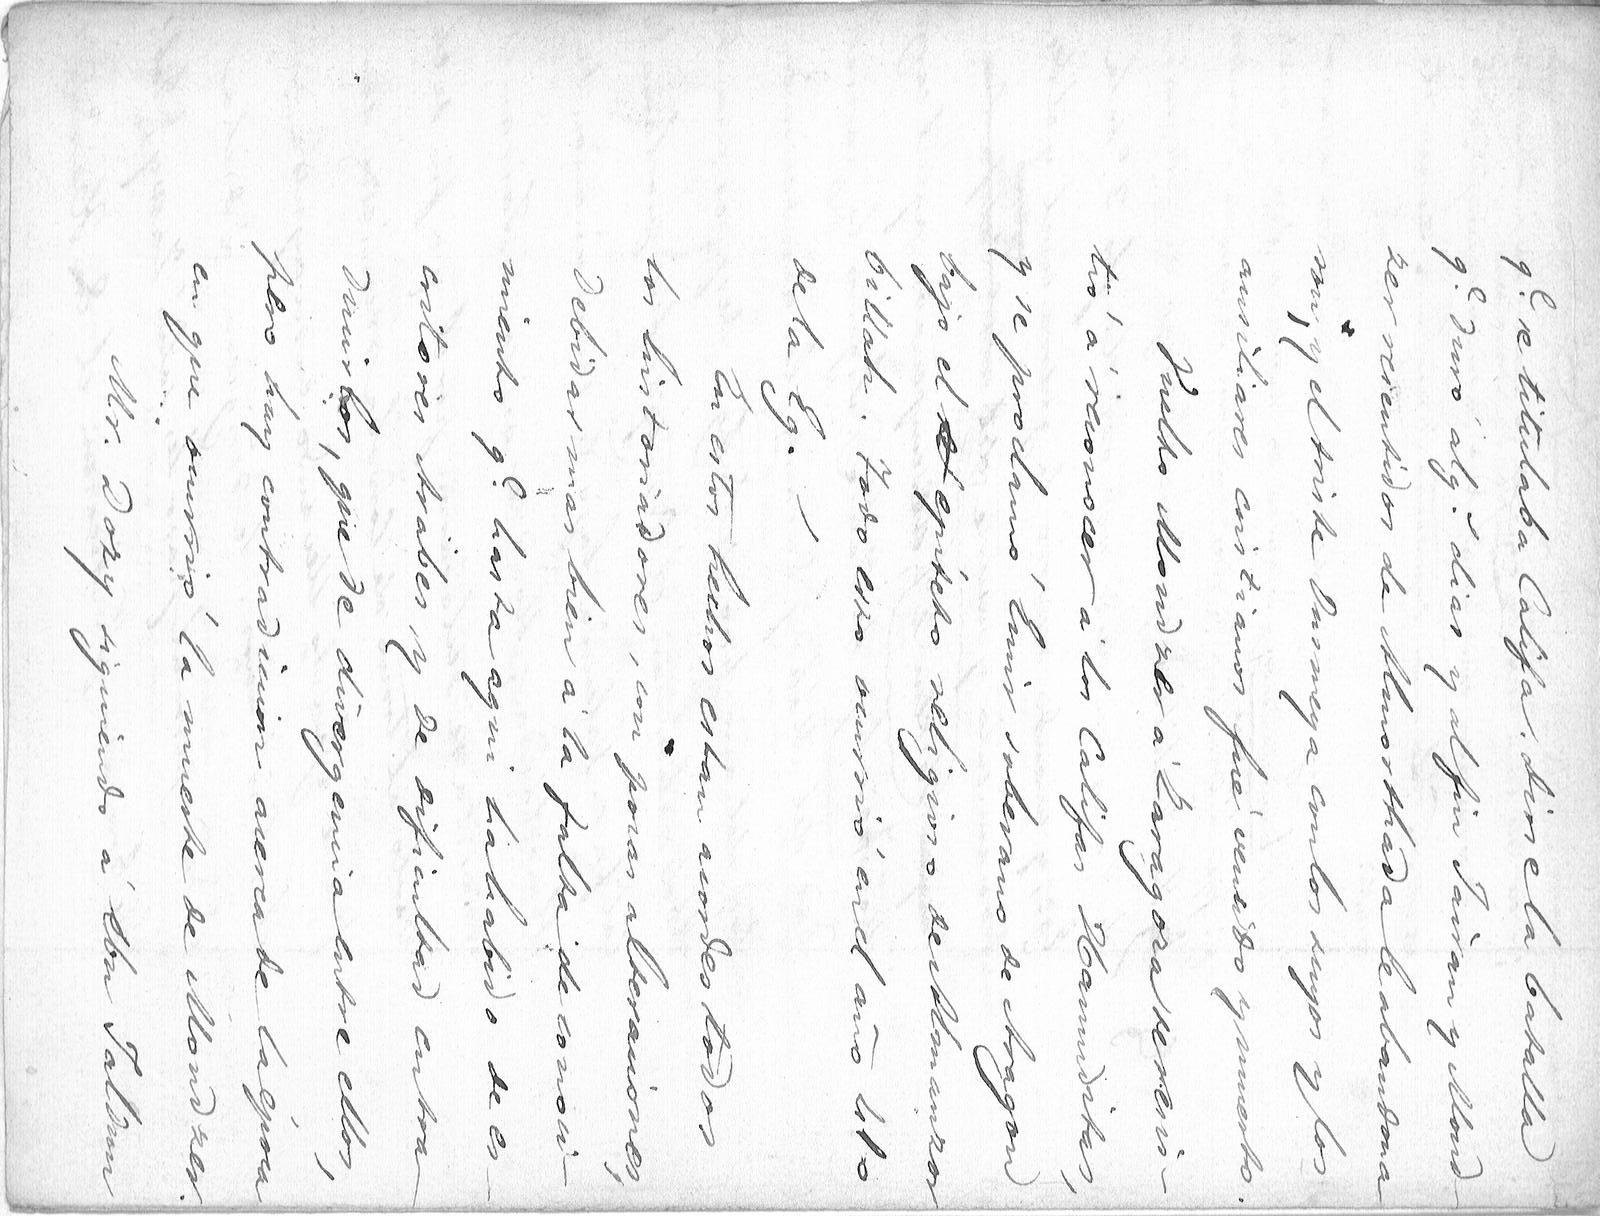 q.e se titulaba Califa. Diose la batalla
q.e duró alg.s dias y al fin Jairan y Mond-
zer resentidos de Almorthada le abandona
ron, y el triste Ommeya con los suyos y los
ausiliares cristianos fué vencido y muerto.
Vuelto Mondzer a Zaragoza se resis-
tió á reconocer á los Califas Hamuditas,
y se proclamó Emir soberano de Aragon
bajo el epiteto religioso de Almanzor
billah. Todo esto ocurrió en el año
de la Eg. —
En estos hechos estan acordes todos
los historiadores, con pocas alteraciones,
debidas mas bien á la falta de conoci-
miento q.e hasta aqui ha habido de es-
critores árabes, y de dificultad entra
dmirlos, que de divergencia entre ellos,
pero hay contradicion acerca de la época
en que ocurrió la muerte de Mondzer.
Mr. Dozy siguiendo á Ebn Jaldun